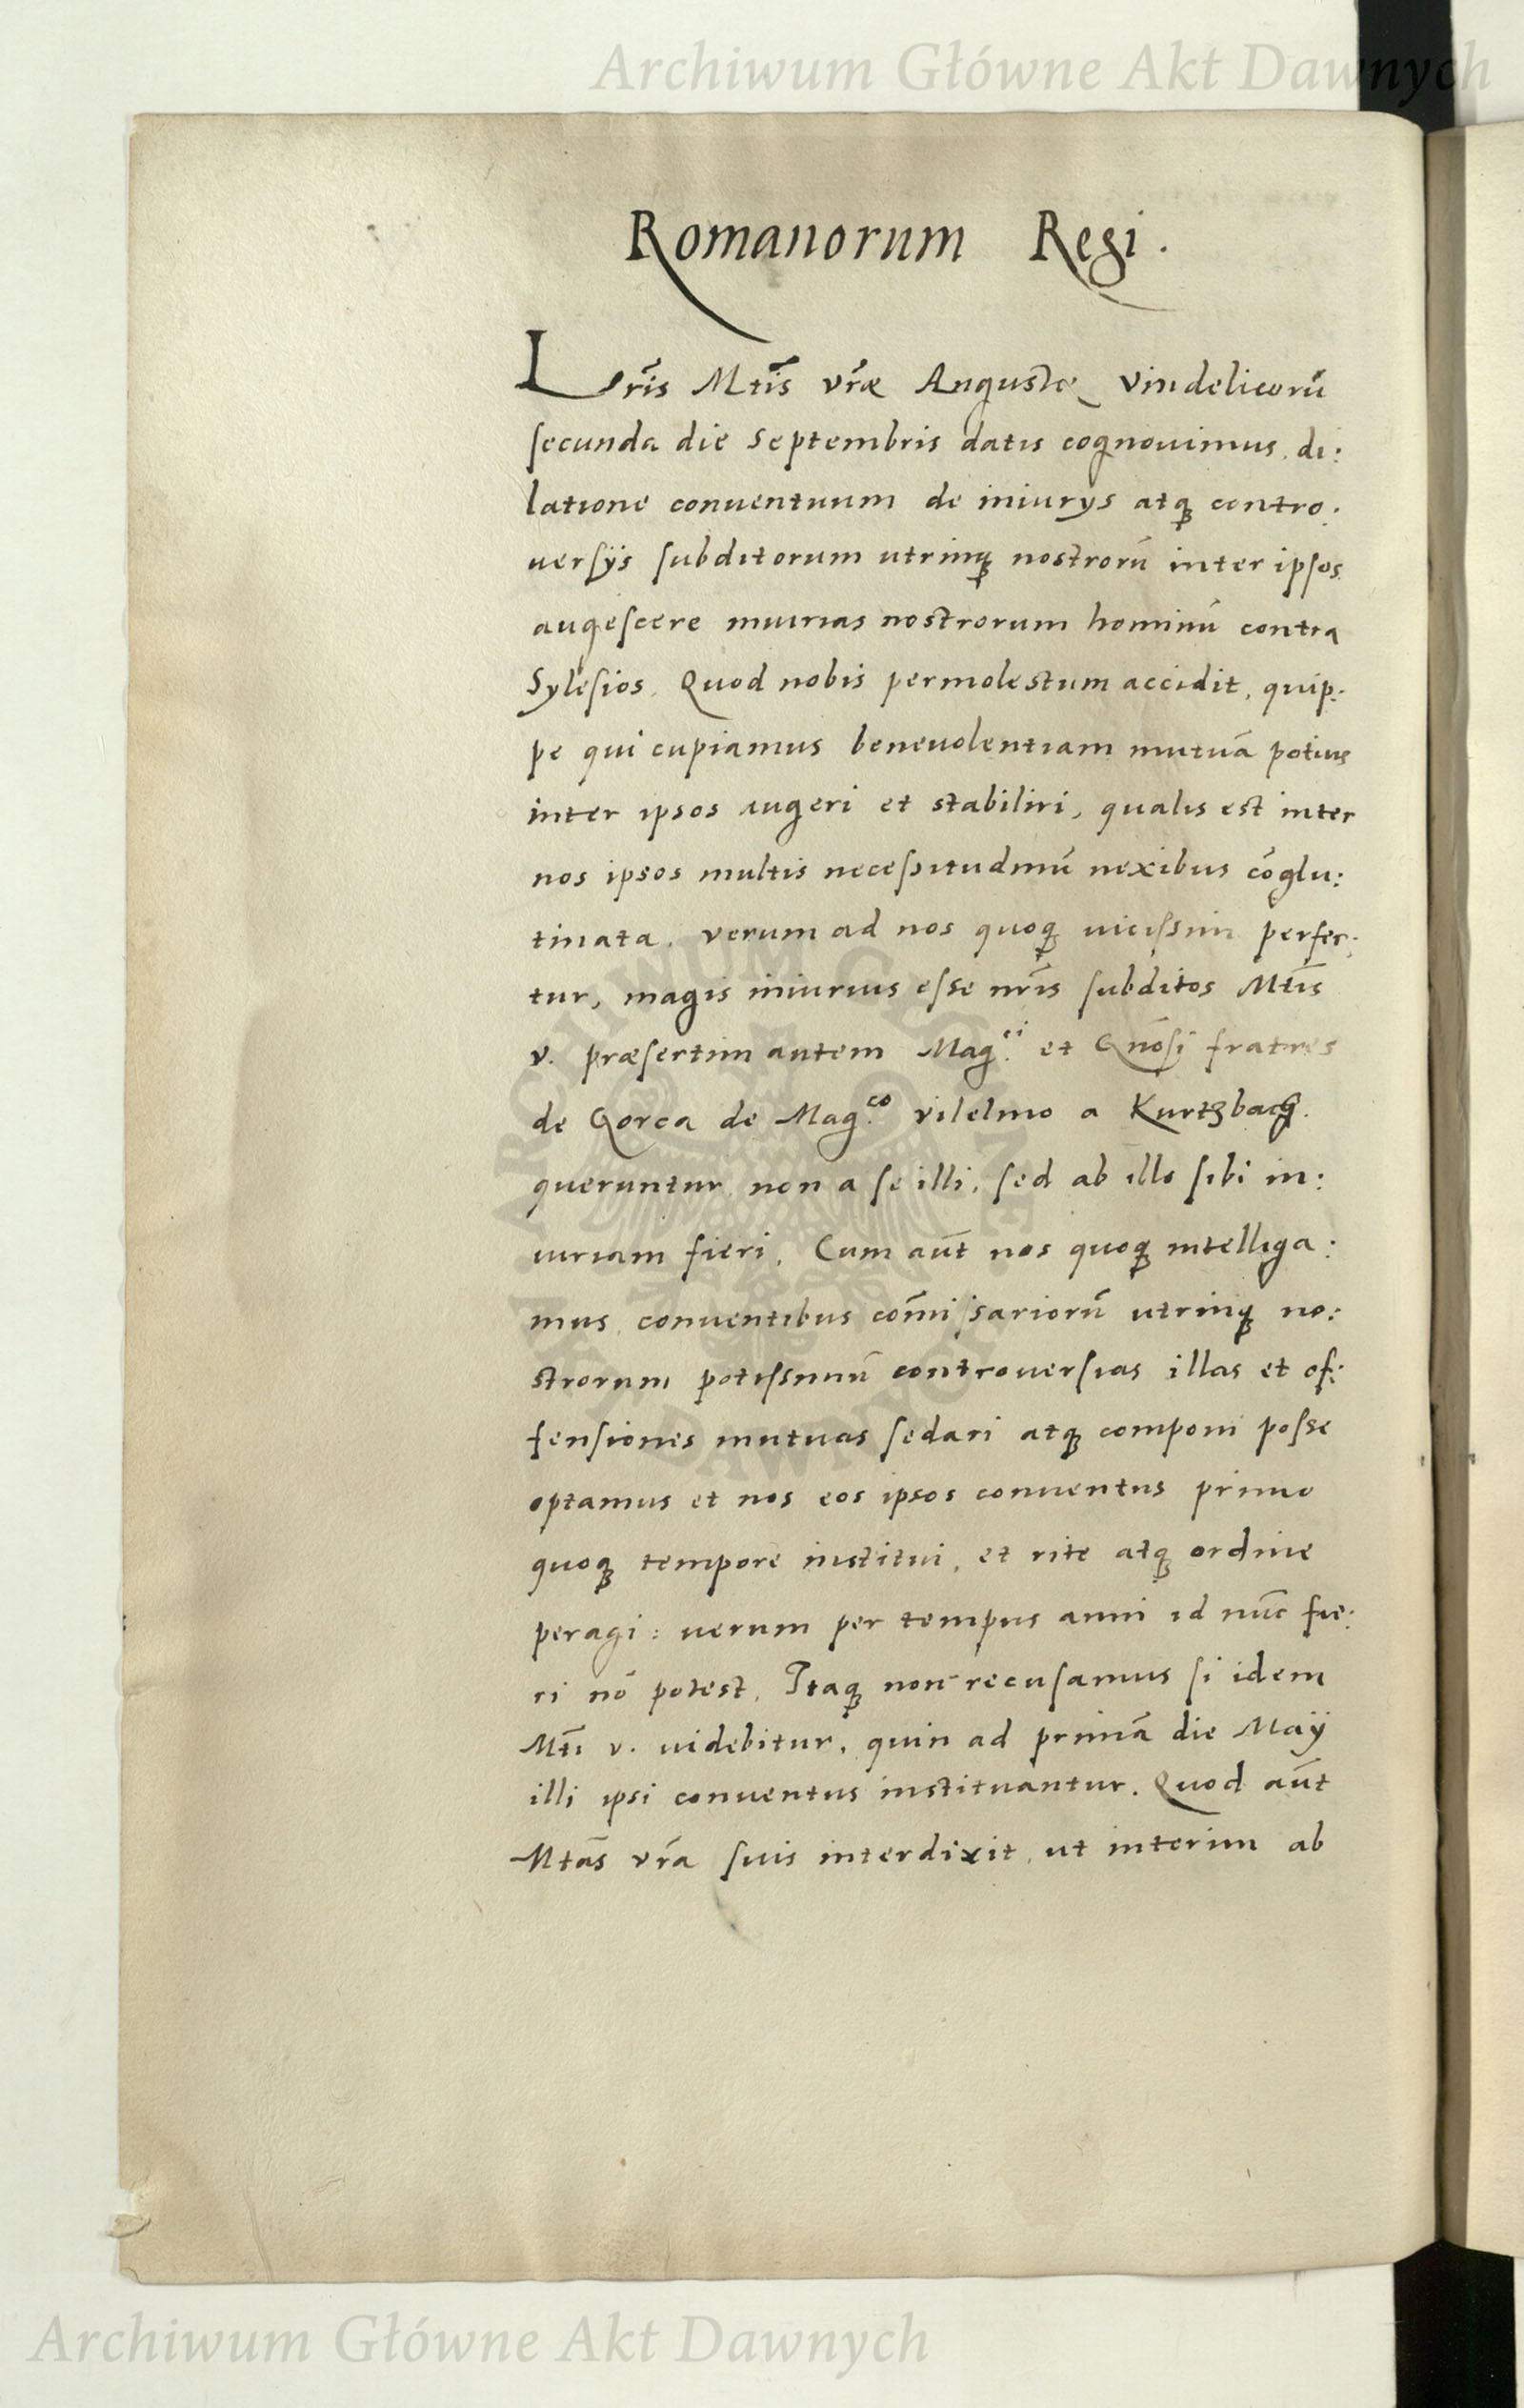 Archiwum Główne Akt Dawnych
Romanorum Regi.
Lr̃is Mtis vr̃æ Augustę Vindelicorũ
secunda die Septembris datis cognouimus, di:
latione conuentuum de iniurys atq; contro:
uersÿs subditorum utrinq; nostrorũ inter ipsos
augescere iniurias nostrorum hominũ contra
Sylesios. Quod nobis permolestum accidit, quip:
pe qui cupiamus beneuolentiam mutuã potius
inter ipsos augeri et stabiliri, qualis est inter
nos ipsos multis necessitudinũ nexibus cõglu:
tinata. verum ad nos quoq; uicissim perfer:
tur, magis iniurius esse nr̃is subditos Mtis
v. præsertim autem Mag.ci et Gñosi fratres
de Gorca de Mag.co Vilelmo a Kurtzbach.
queruntur, non a se illi, sed ab illo sibi in:
iuriam fieri. Cum aũt nos quoq; intelliga:
mus, conuentibus com̃issariorũ utrinq; no:
strorum potissimũ controuersias illas et of:
fensiones mutuas sedari atq; componi posse
optamus et nos eos ipsos conuentus primo
quoq; tempore institui, et rite atq; ordine
peragi: uerum per tempus anni id nũc fie:
ri nõ potest. Itaq; non recusamus si idem
Mti v. uidebitur, quin ad primã die Maÿ
illi ipsi conuentus instituantur. Quod aũt
Mtas vr̃a suis interdixit, ut interim ab
ARCHIWUM GŁÓWNE
AKT DAWNYCH
Archiwum Główne Akt Dawnych